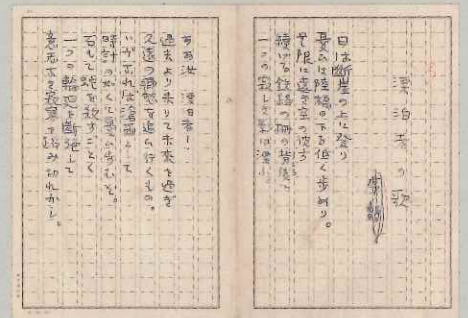 漂泊者の歌
日は断崖の上に登り
憂ひは陸橋の下を低く歩めり。
無限に遠き空の彼方
続ける鉄路の柵の背後に
一つの寂しき影は漂ふ。
ああ汝 漂泊者!
過去より来りて未来を過ぎ
久遠の郷愁を追ひ行くもの。
いかなれば蹌爾として
時計の如くに憂ひ歩むぞ。
石もて蛇を殺すごとく
一つの輪廻を断絶して
意志なき寂寥を踏み切れかし。